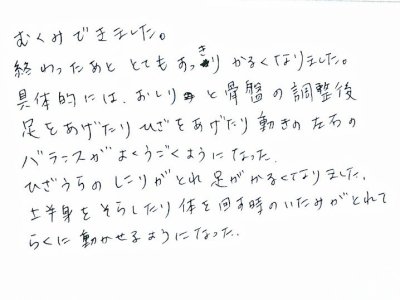 むくみできました。
終わったあと とてもあっきりかるくなりました。
具体的には、おしりと骨盤の調整後
足をあげたりひざをあげたり動きの左右の
バランスがよくうごくようになった.
ひざうらのしこりがとれ足がかるくなりました.
上半身をそらしたり体を回す時のいたみがとれて
らくに動かせるようになった.